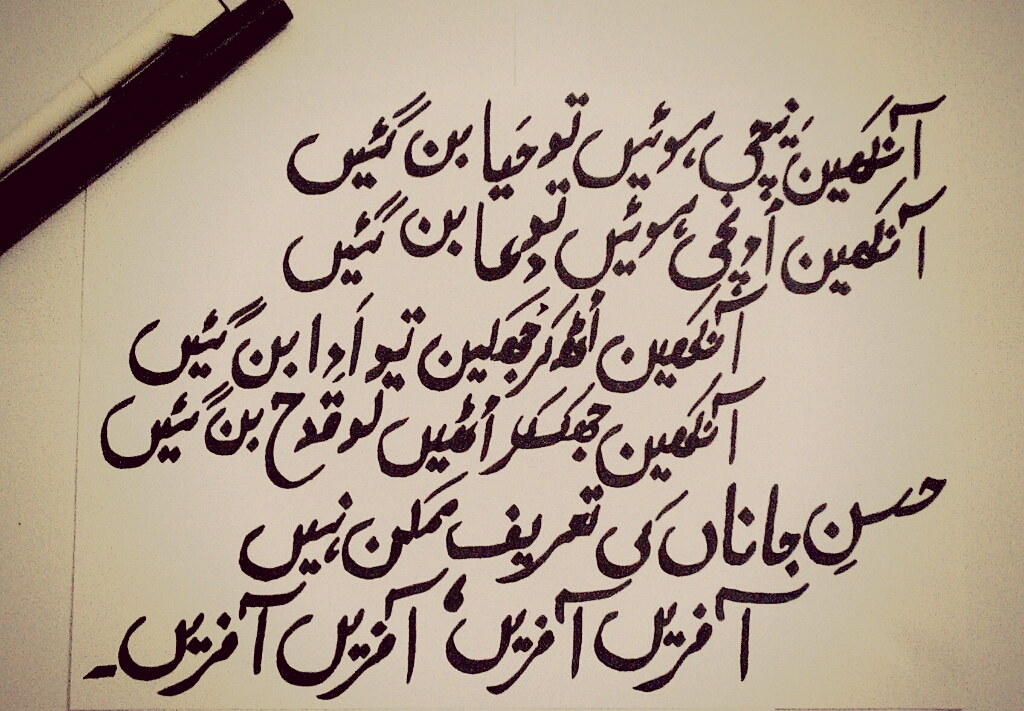 آنکھیں نیچی ہوئیں تو حَیا بن گئیں
آنکھیں اُونچی ہوئیں تو دعا بن گئیں
آنکھیں اُٹھ کر جُھکیں تو اَدا بن گئیں
آنکھیں جھک کر اُٹھیں تو قدح بن گئیں
حسنِ جاناں کی تعریف ممکن نہیں
آفریں آفریں، آفریں آفریں۔